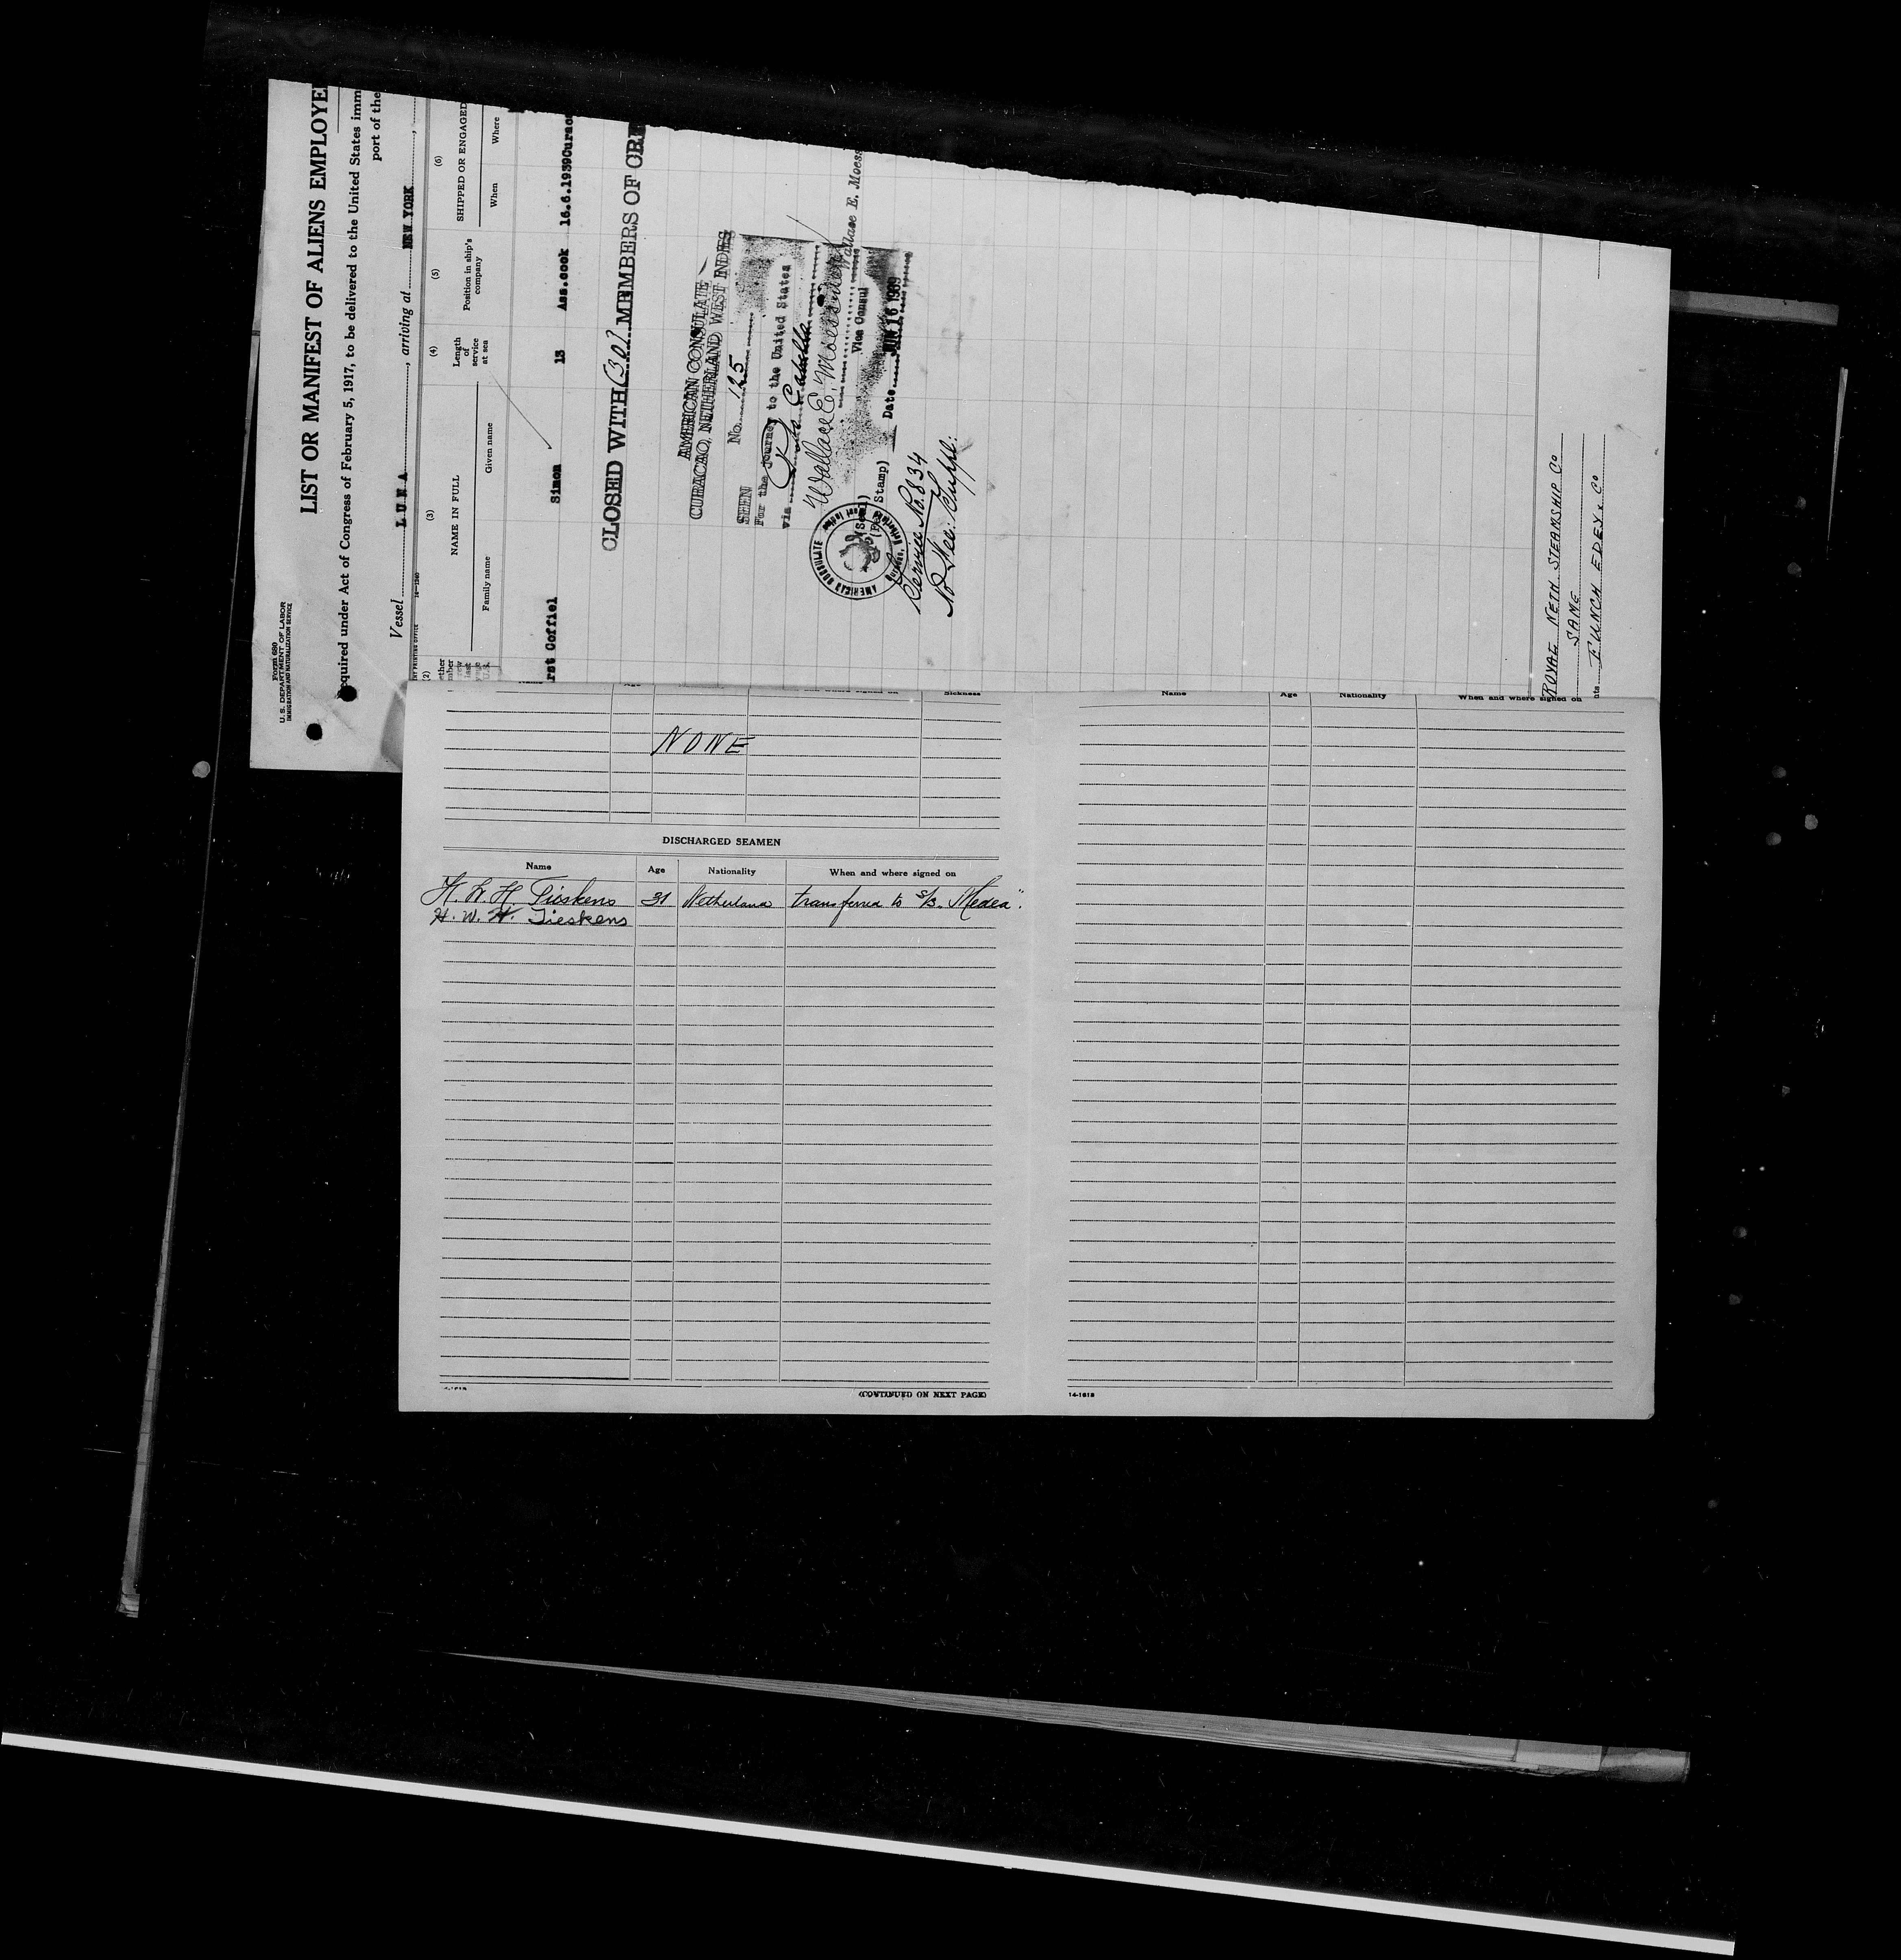 Form 680
U. S. DEPARTMENT OF LABOR
IMMIGRATION AND NATURALIZATION SERVICE
LIST OR MANIFEST OF ALIENS EMPLOYE
equired under Act of Congress of February 5, 1917, to be delivered to the United States imm
port of the
Vessel L U N A, arriving at NEW YORK,
NT PRINTING OFFICE
(2) (3) (4) (5) (6)
NAME IN FULL
Family name Given name
Length of service at sea
Position in ship's company
SHIPPED OR ENGAGED
When Where
rst Coffiel Simon 13 Ass.cook 16.6.1939 Curac
CLOSED WITH (30) MEMBERS OF CRE
AMERICAN CONSULATE
CURACAO, NETHERLAND WEST INDIES
SEEN No. 125
For the journey to the United States
via Cabello
Wallace E. Moessner
Wallace E. Moess
Vice Consul
(Seal)
(Fee Stamp) Date JUN 16 1939
AMERICAN CONSULATE
Service No. 834
No Fee
ROYAL NETH. STEAMSHIP Co
SAME
nts FUNCH EDEY & Co
Name Age When and where signed on Sickness
NONE
DISCHARGED SEAMEN
Name Age Nationality When and where signed on
H. W. H. Tieskens 31 Netherland transferred to S/S. "Medea".
H. W. H. Tieskens
(CONTINUED ON NEXT PAGE)
Name Age Nationality When and where signed on
14-1618